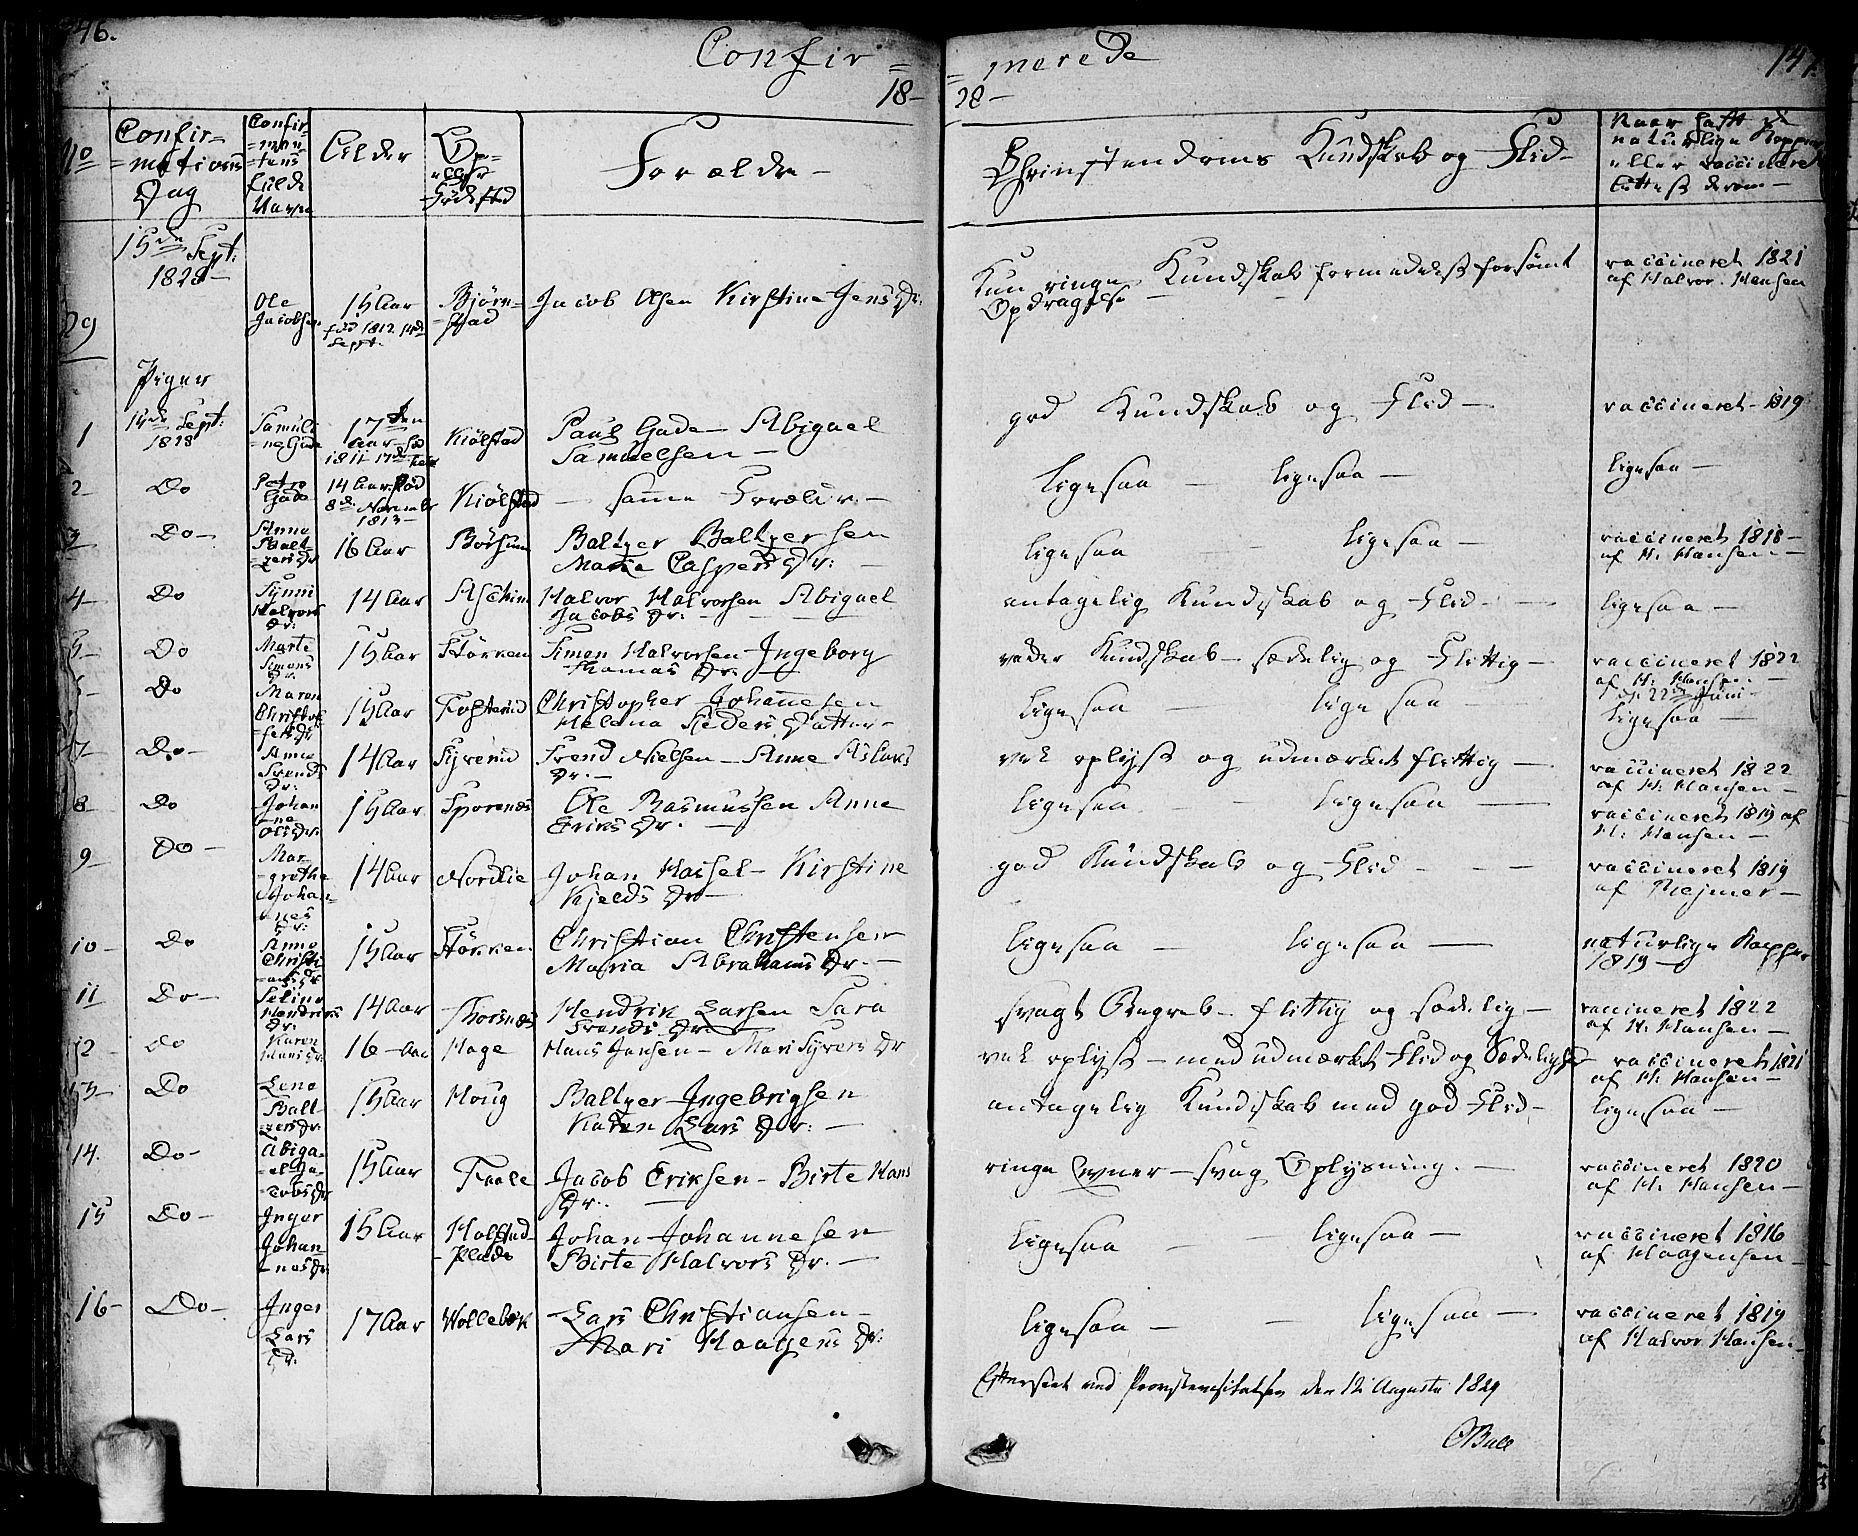 146.
Confir=
=merede
147.
18-
28-
No
Confir=
=mations
Dag
Confir=
=man
=tens
fulde
Navn
Alder
Op=
=egs
Födested
Forældre -
Christendoms Kundskab og Flid-
naturlige Kopper
eller vaccineret
15de Sept:
1828-
29
Ole
Jacobsen
15 Aar
fød 1812 14de
Sept.
Bjørn=
=stad
Jacob Olsen Kirstine Jens Dr:
Kun ringe Kundskab formedelst forsömt
Opdragelse
vaccineret 1821
af Halvor Hansen
Piger
1
14de Sept:
1828
Samuli
=ne Gude
17den
Aar
1811 17de
Kiölstad
Paul Gude - Abigael
Samuelsen -
god Kundskab og Flid -
vaccineret - 1819
2-
Do
Petro
Gude
14 Aar fød
8de November
1813-
Kiölstad
- samme Forældre. -
ligesaa - ligesaa -
ligesaa -
3
Do-
Anne
Balt-
zers Dr
16 Aar
Börsum
Baltzer Baltzersen
Marie Caspers Dr: -
ligesaa - ligesaa -
vaccineret 1818-
af H. Hansen -
4-
Do
Synni
Halvors
Dr:
14 Aar
Aschim
Halvor Halvorsen Abigael
Jacobs Dr: -
antagelig Kundskab og Flid - -
ligesaa -
5-
Do
Marte
Simons
Dr.
15 Aar
Störren
Simon Halvorsen - Ingeborg
Thomas Dr. -
Kundskab - sædelig og flittig -
vaccineret 1822
af H. Hansen -
d. 22de Juni
Do
Maren
Christof
=fers Dr
15 Aar
Fosterud
Christopher Johannesen
Helena Peders Datter -
ligesaa - ligesaa -
ligesaa -
7-
Do-
Anne
Svends
Dr:
14 Aar
Syverud
Svend Nielsen - Anne Aslaks
Dr. -
vel oplyst og udmærket flittig -
vaccineret 1822
af H. Hansen -
8
Do
Johan
=ne
Ols Dr:
15 Aar
Sporenæs
Ole Rasmussen Anne
Eriks Dr. -
ligesaa - ligesaa -
vaccineret 1819 af
H. Hansen -
9-
Do-
Mar-
-grethe
Johan-
=nes
Dr:
14 Aar
Nordlie
Johan Hassel - Kirstine
Kjelds Dr -
god Kundskab og Flid - - -
vaccineret 1819
af Rejmer -
10-
Do
Anne
Christi
=ans Dr
15 Aar
Störren
Christian Christensen
Maria Abrahams Dr. -
ligesaa - ligesaa -
naturlige Kopper
1819 -
11
Do-
Seline
Hendriks
Dr:
14 Aar
Thorsnæs
Hendrik Larsen Sara
Svends Dr: -
svagt Begreb - flittig og sædelig -
vaccineret 1822
af H. Hansen -
12-
Do
Karen
Hans Dr:
16 - Aar
Hage
Hans Jensen - Mari Syvers Dr
vel oplyst - med udmærket Flid og Sædelighed
vaccineret 1821
af H. Hansen -
13-
Do
Lene
Balt-
zers Dr:
15 Aar
Houg
Baltzer Ingebrigsen
Karen Lars Dr: -
antagelig Kundskab med god Flid -
ligesaa -
14.
Do-
Abiga-
=el Ja-
=cobs Dr
15 Aar
Faale
Jacob Eriksen - Birte Hans
Dr:. -
ringe Evner - svag Oplysning. -
vaccineret 1820
af H. Hansen -
15
Do-
Inger
Johan-
=nes Dr
15 Aar
Holstad-
-plads
Johan Johannesen
Birte Halvors Dr. -
ligesaa - ligesaa -
vaccineret 1816
af Haagensen -
16-
Do-
Inger
Lars
Dr:
17 Aar
Hollebæk
Lars Christiansen -
Mari Haagens Dr:
ligesaa - - ligesaa -
vaccineret 1819
af Halvor Hansen -
Efterseet ved Provstevisitatsen den 12 Augusti 1829
OBull